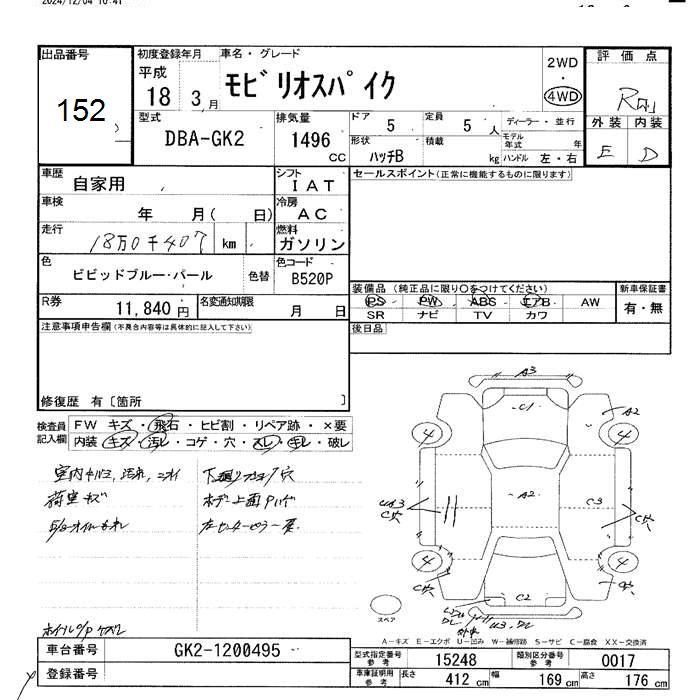 2024/12/04 10:41
出品番号
152
初度登録年月
平成
18 3 月
車名・グレード
モビリオスパイク
2WD
・
4WD
評価点
R
外装 内装
E D
型式
DBA-GK2
排気量
1496
CC
ドア
5
定員
5 人
ディーラー・並行
モデル
年式 年
形状
ハッチB
積載
kg
ハンドル 左・右
車歴
自家用
シフト
IAT
車検
年 月( 日)
冷房
AC
走行
18万0千407 km
燃料
ガソリン
セールスポイント(正常に機能するものに限ります)
色
ビビッドブルー・パール
色替
色コード
B520P
R券
11,840 円
名変通知期限
月 日
装備品(純正品に限り〇をつけてください)
PS PW ABS エアB AW
SR ナビ TV カワ
新車保証書
有・無
後日品
注意事項申告欄(不具合内容等は具体的に記入して下さい)
修復歴 有〔箇所 〕
検査員
記入欄
FW キズ・飛石・ヒビ割・リペア跡・×要
内装・キズ・汚レ・コゲ・穴・スレ・キレ・破レ
荷室キズ
A3
C1
A2
4 4
A2
UA3
C穴
C3
C穴
4 4
C穴
C2
スペア
A-キズ E-エクボ U-凹み W-補修跡 S-サビ C-腐食 XX-交換済
車台番号
GK2-1200495
登録番号
型式指定番号
参考
15248
類別区分番号
参考
0017
車庫証明用
参考
長さ
412 cm
幅
169 cm
高さ
176 cm